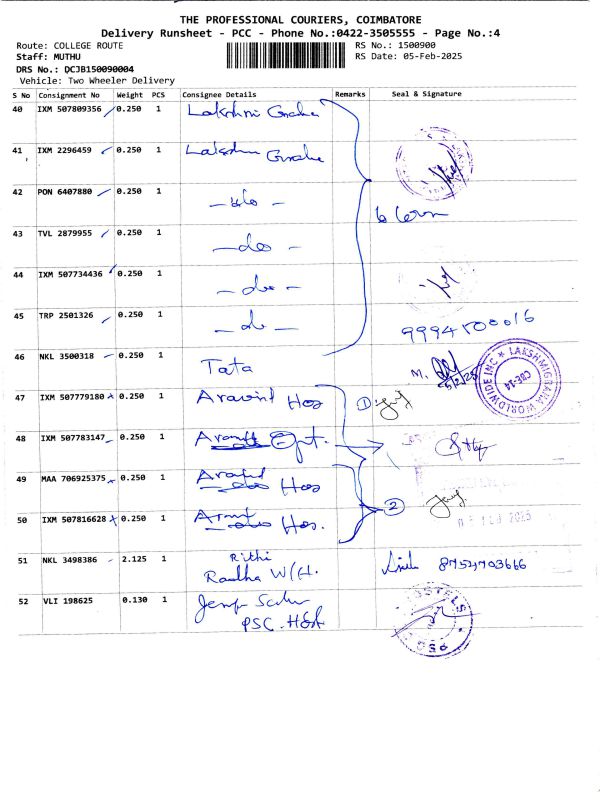 THE PROFESSIONAL COURIERS, COIMBATORE
Delivery Runsheet - PCC - Phone No.:0422-3505555 - Page No.:4
Route: COLLEGE ROUTE RS No.: 1500900
Staff: MUTHU RS Date: 05-Feb-2025
DRS No.: DCJB150090004
Vehicle: Two Wheeler Delivery
S No Consignment No Weight PCS Consignee Details Remarks Seal & Signature
40 IXM 507809356 0.250 1 Lakshmi
41 IXM 2296459 0.250 1
42 PON 6407880 0.250 1
43 TVL 2879955 0.250 1 - do -
44 IXM 507734436 0.250 1 - do -
45 TRP 2501326 0.250 1 - do -
9994500016
46 NKL 3500318 0.250 1 Tata M.
LAKSHMIGRAHA WORLDWIDE INC CBE-14
47 IXM 507779180 0.250 1 Aravind Hos 1
48 IXM 507783147 0.250 1 Opt.
49 MAA 706925375 0.250 1 Aravind Hos
50 IXM 507816628 0.250 1 Hos. 2
51 NKL 3498386 2.125 1 Rithi
Radha W/H. 8754703666
52 VLI 198625 0.130 1
PSC.